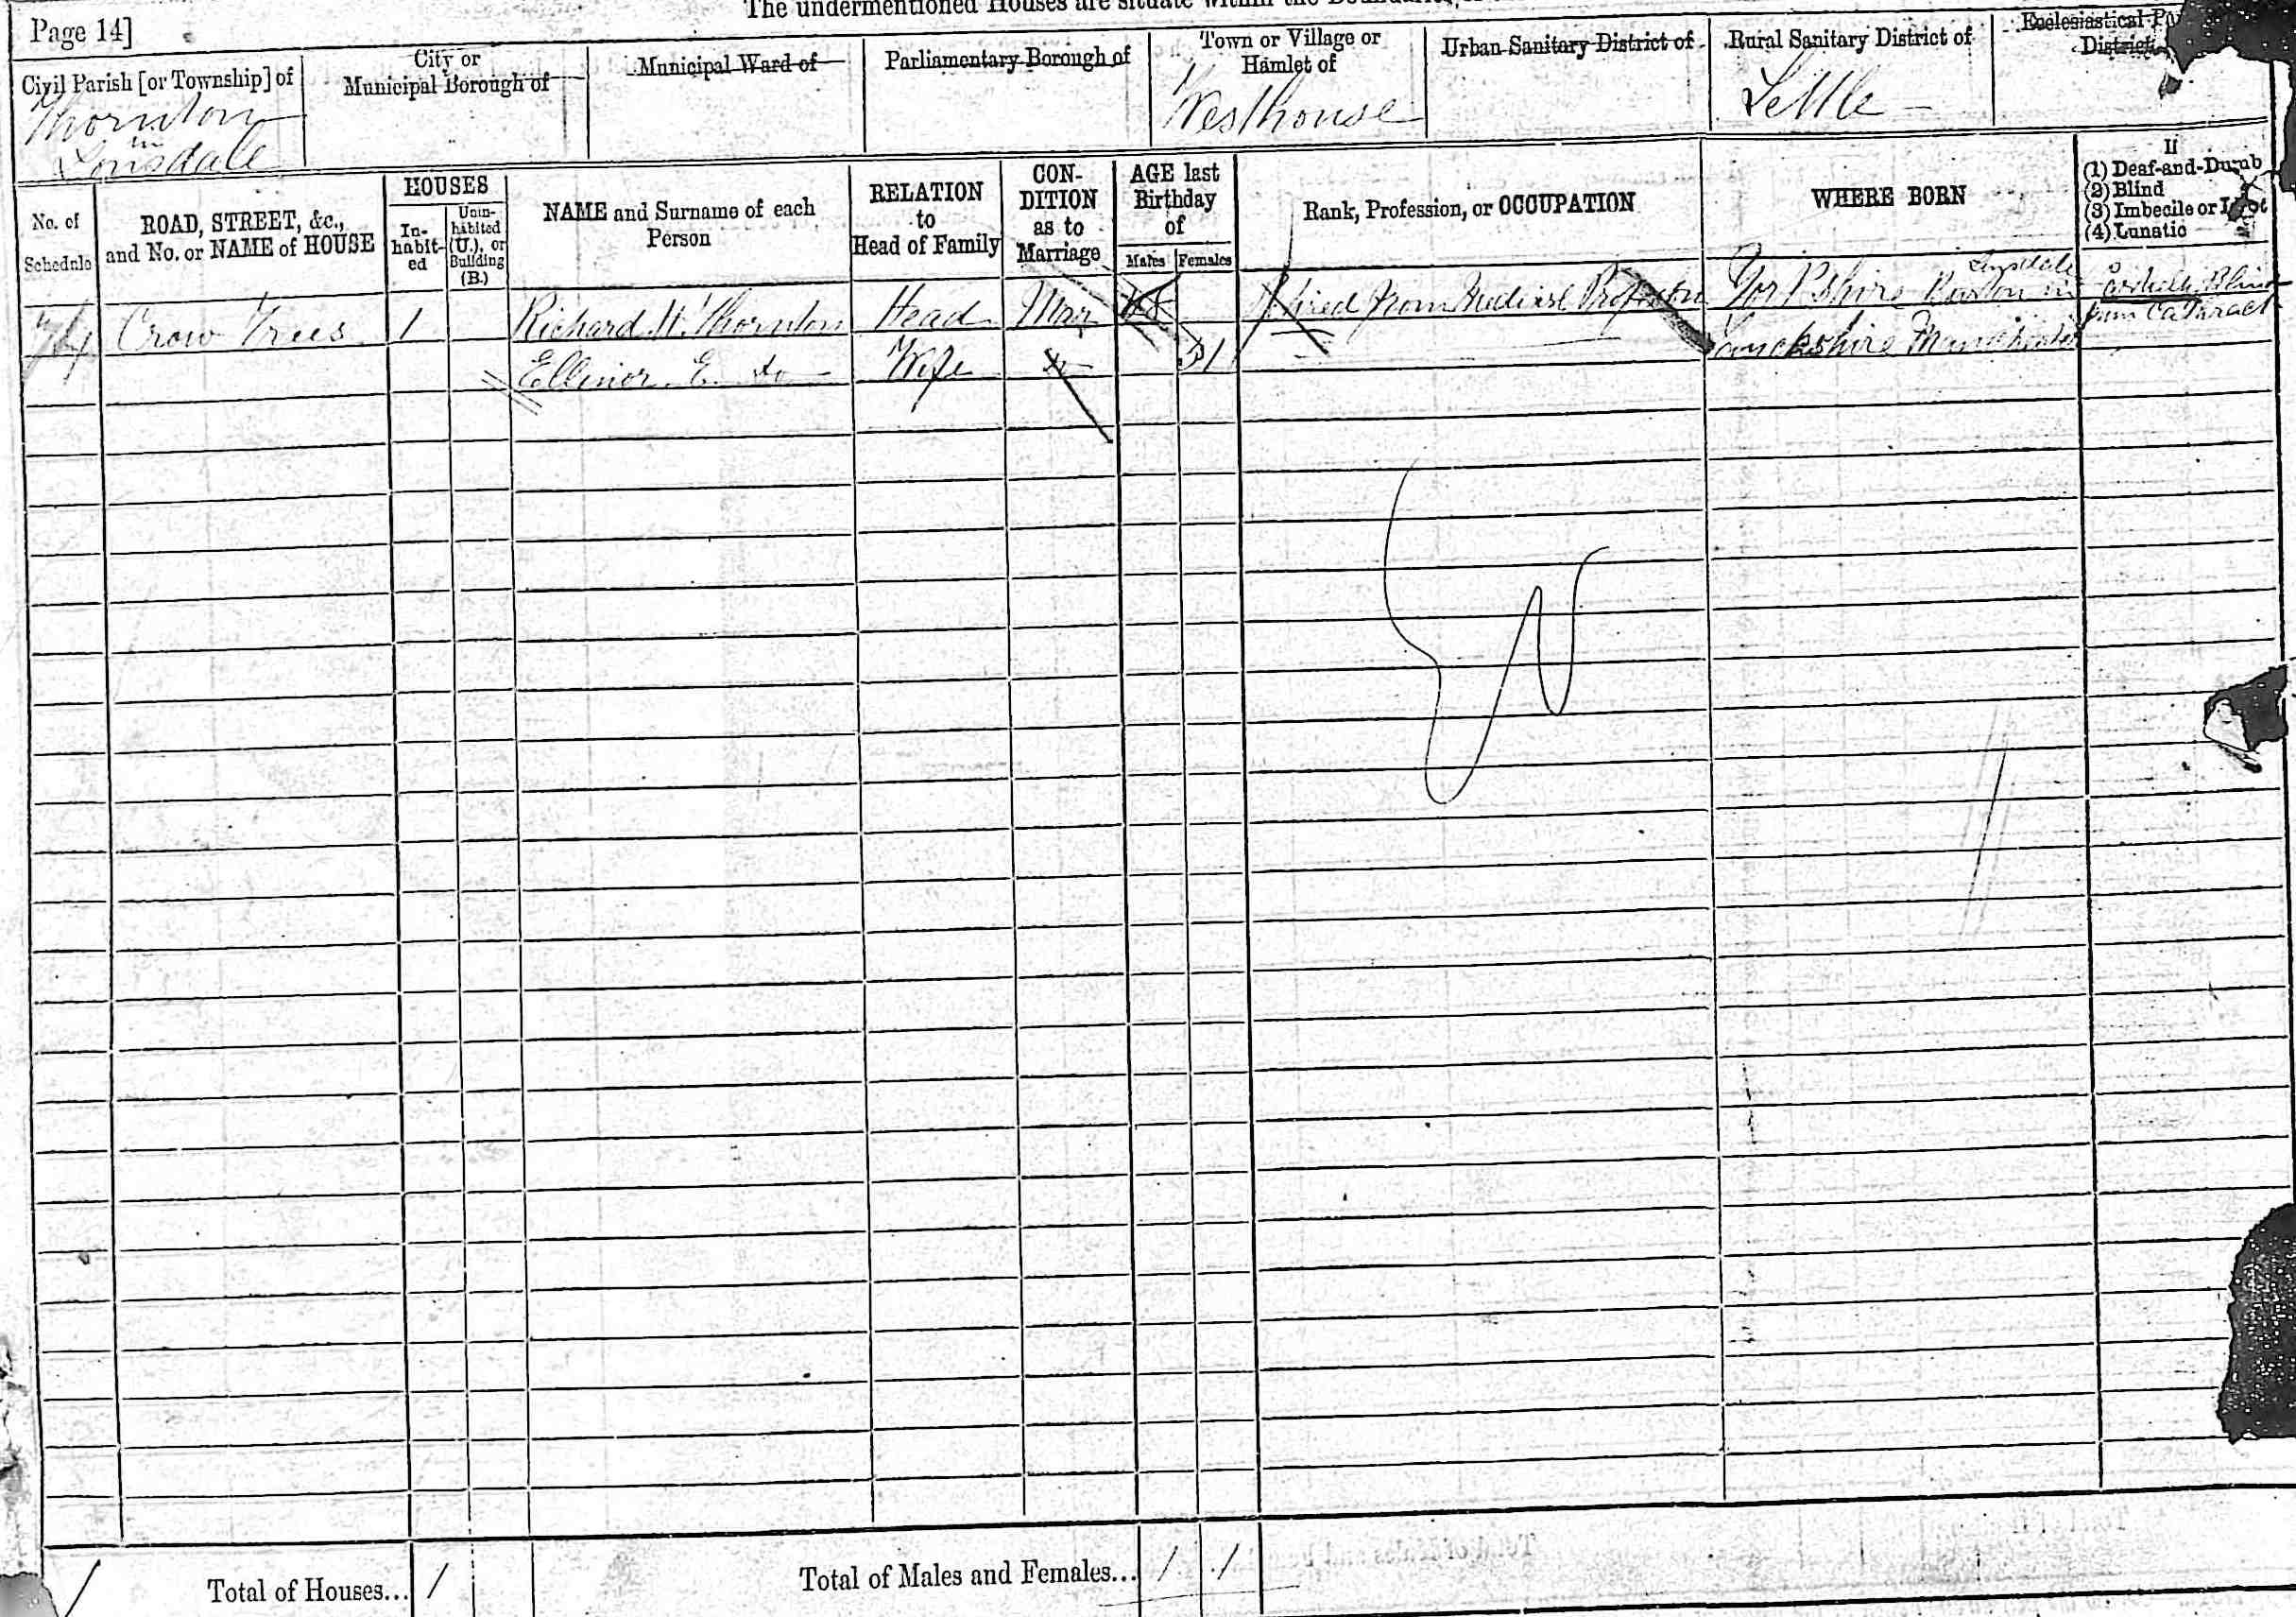 The undermentioned Houses are situate within the
Page 14]
Civil Parish [or Township] of
Thornton
in
Lonsdale
City or
Municipal Borough of
Municipal Ward of
Parliamentary Borough of
Town or Village or
Hamlet of
Westhouse
Urban Sanitary District of
Rural Sanitary District of
Settle
Ecclesiastical
District
No. of
Schedule
ROAD, STREET, &c.,
and No. or NAME of HOUSE
HOUSES
In-
habit-
ed
Unin-
habited
(U.), or
Building
(B.)
NAME and Surname of each
Person
RELATION
to
Head of Family
CON-
DITION
as to
Marriage
AGE last
Birthday
of
Males
Females
Rank, Profession, or OCCUPATION
WHERE BORN
If
(1) Deaf-and-Dumb
(2) Blind
(3) Imbecile or Idiot
(4) Lunatic
Crow Trees 1 Richard W. Thornton Head Mar Retired from Medical Profession Yorkshire Burton in Lonsdale Blind
from Cataract
Ellinor E. do Wife do 51 Lancashire Manchester
Total of Houses... 1
Total of Males and Females... 1 1